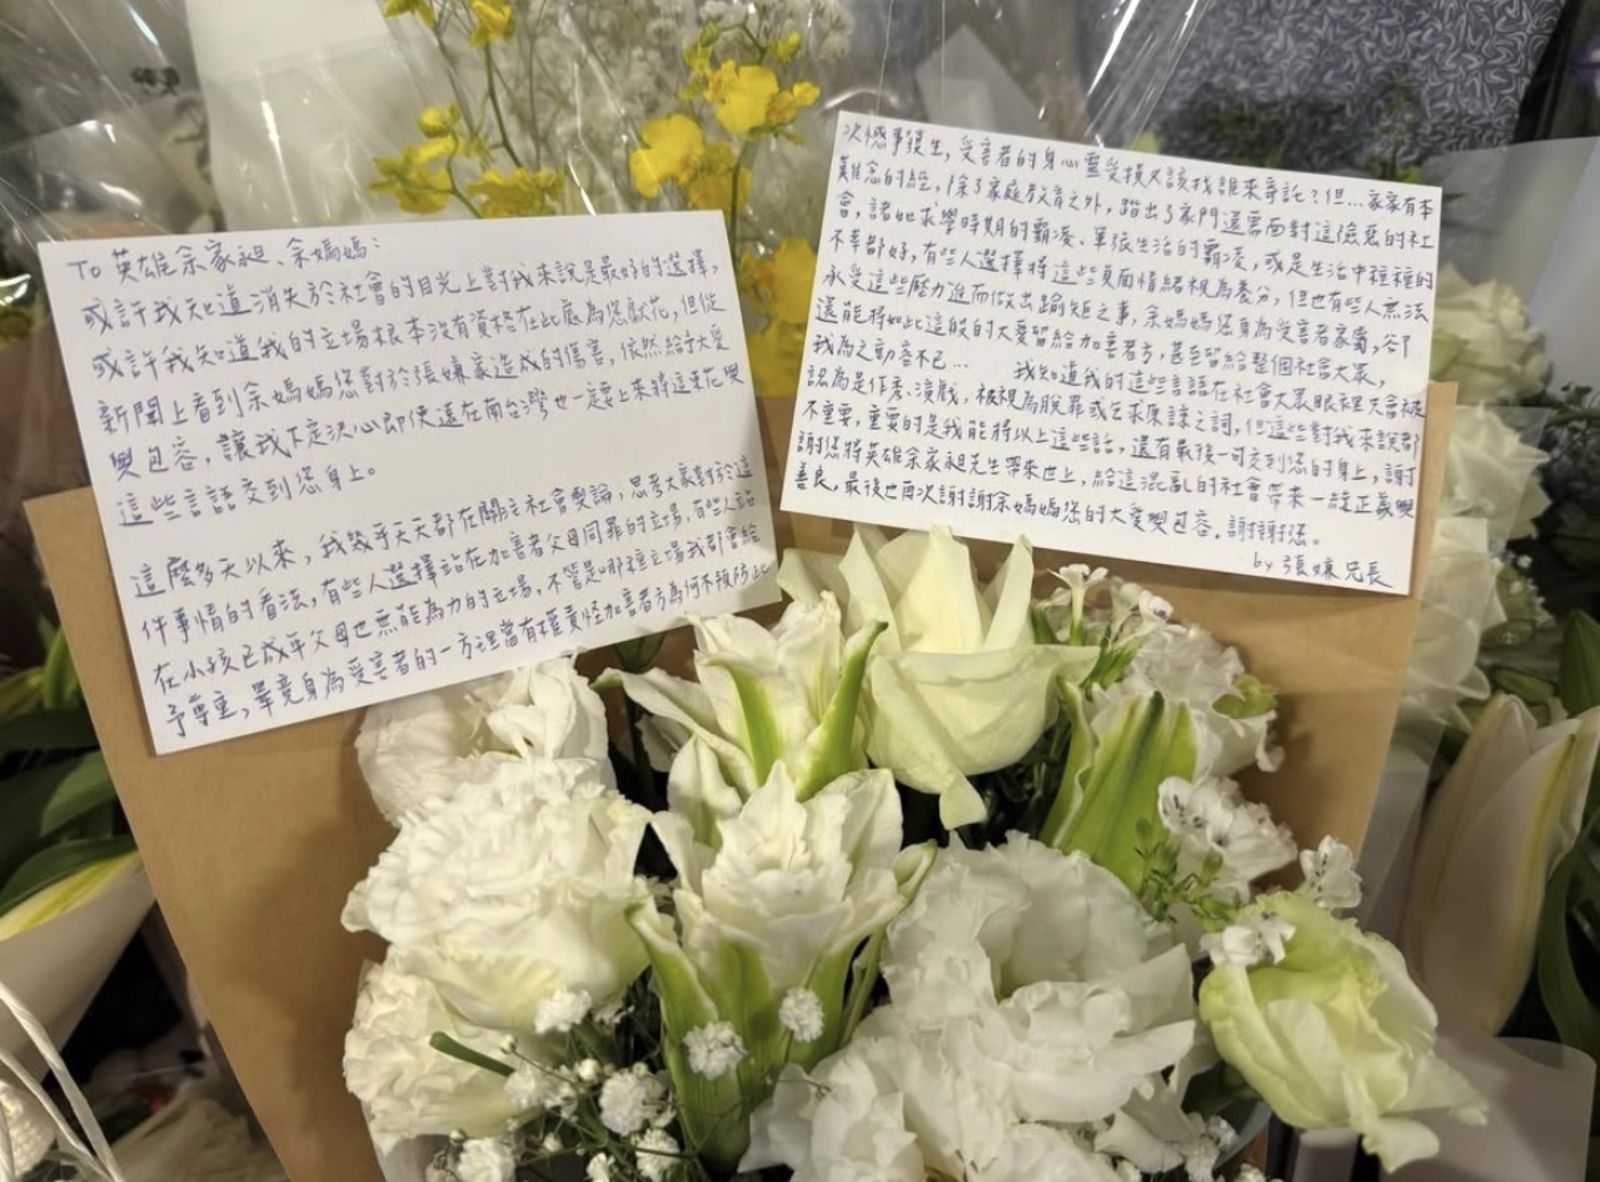 To 英雄余家昶、余媽媽：
或許我知道消失於社會的目光上對我來說是最好的選擇，
或許我知道我的立場根本沒有資格在此處為您獻花，但從
新聞上看到余媽媽您對於張嫌家造成的傷害，依然給予大愛
與包容，讓我下定決心即使遠在南台灣也一定要上來將這束花與
這些言語交到您身上。
這麼多天以來，我幾乎天天都在關注社會輿論，思考大家對於這
件事情的看法，有些人選擇站在加害者父母同罪的立場，有些人站
在小孩已成年父母也無能為力的立場，不管是哪種立場我都會給
予尊重，畢竟身為受害者的一方理當有權責怪加害者方為何不預防此
次憾事發生，受害者的身心靈受損又該找誰來尋託？但…家家有本
難念的經，除了家庭教育之外，踏出了家門還需面對這險惡的社
會，諸如求學時期的霸凌、軍旅生活的霸凌，或是生活中種種的
不幸都好，有些人選擇將這些負面情緒視為養分，但也有些人無法
承受這些壓力進而做出踰矩之事，余媽媽您身為受害者家屬，卻
還能將如此這般的大愛留給加害者方，甚至留給整個社會大眾，
我為之動容不已… 我知道我的這些言語在社會大眾眼裡只會被
認為是作秀、演戲，被視為脫罪或乞求原諒之詞，但這些對我來說都
不重要，重要的是我能將以上這些話，還有最後一句交到您的身上，謝
謝您將英雄余家昶先生帶來世上，給這混亂的社會帶來一線正義與
善良，最後也再次謝謝余媽媽您的大愛與包容，謝謝您。
by 張嫌兄長